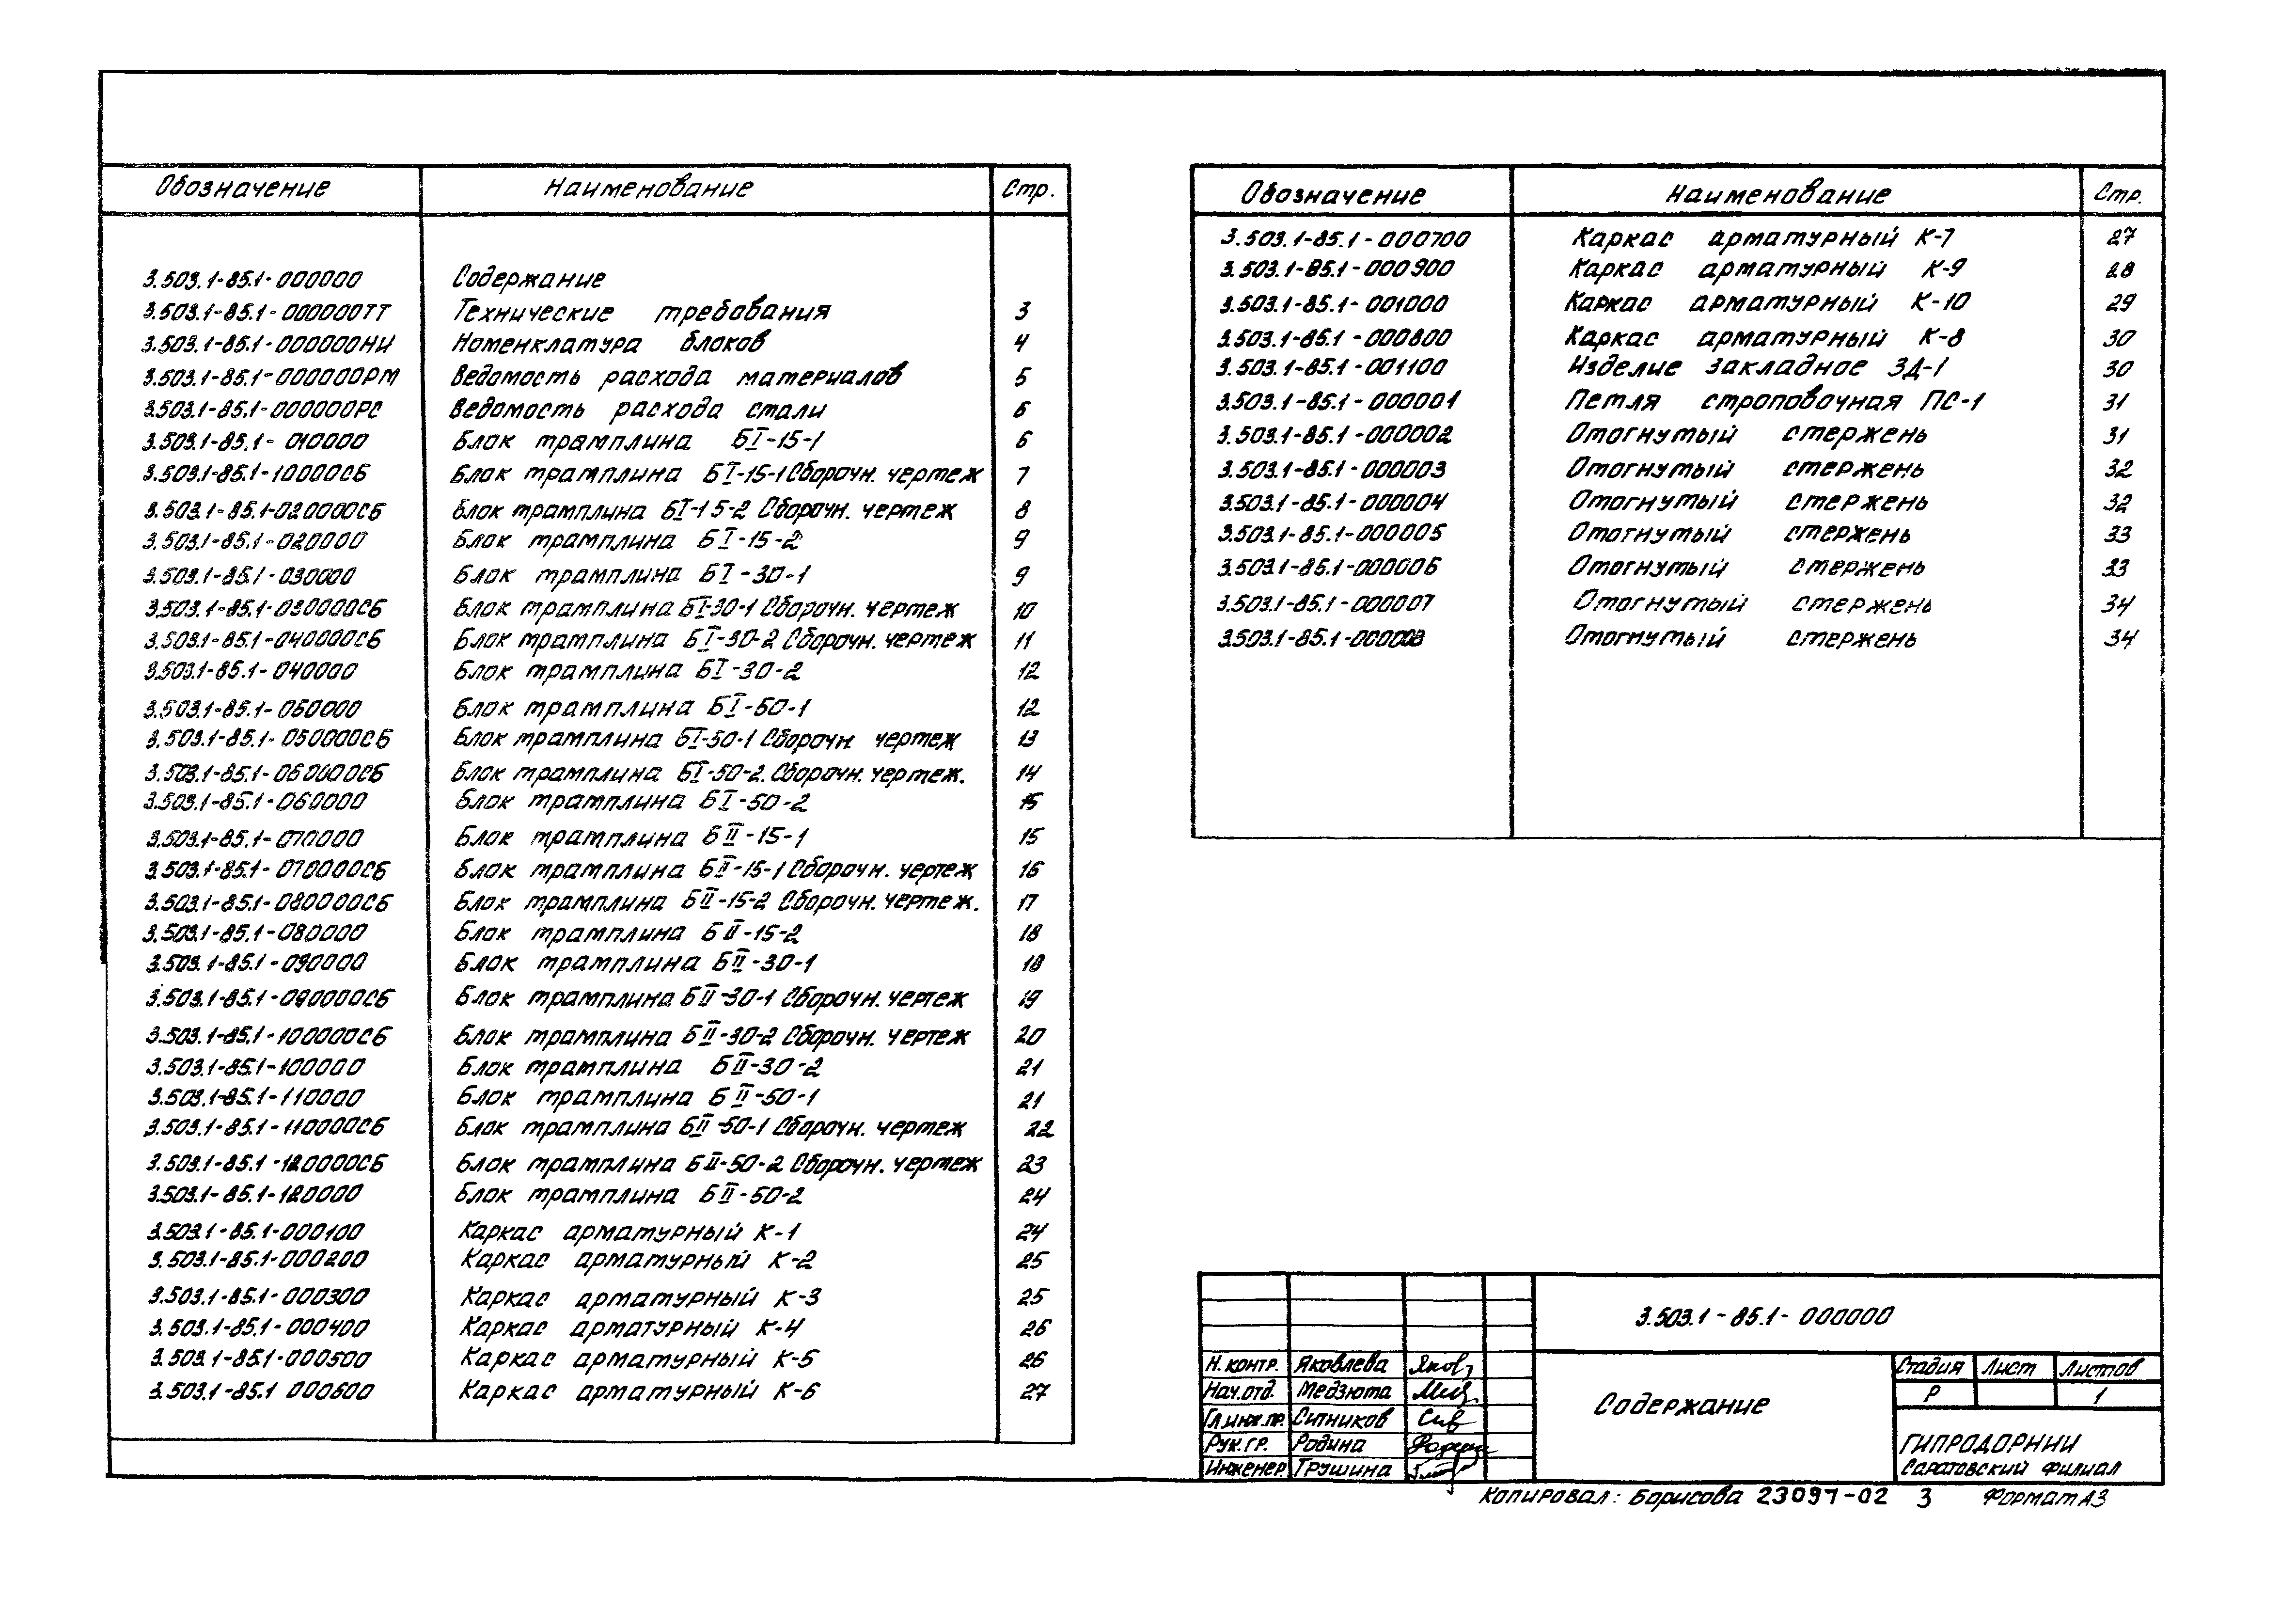 Обозначение Наименование Стр.
3.503.1-85.1-000000 Содержание
3.503.1-85.1-000000ТТ Технические требования 3
3.503.1-85.1-000000НИ Номенклатура блоков 4
3.503.1-85.1-000000РМ Ведомость расхода материалов 5
3.503.1-85.1-000000РС Ведомость расхода стали 6
3.503.1-85.1-010000 Блок трамплина БI-15-1 6
3.503.1-85.1-10000СБ Блок трамплина БI-15-1 Сборочн. чертеж 7
3.503.1-85.1-020000СБ Блок трамплина БI-15-2 Сборочн. чертеж 8
3.503.1-85.1-020000 Блок трамплина БI-15-2 9
3.503.1-85.1-030000 Блок трамплина БI-30-1 9
3.503.1-85.1-030000СБ Блок трамплина БI-30-1 Сборочн. чертеж 10
3.503.1-85.1-040000СБ Блок трамплина БI-30-2 Сборочн. чертеж 11
3.503.1-85.1-040000 Блок трамплина БI-30-2 12
3.503.1-85.1-050000 Блок трамплина БI-50-1 12
3.503.1-85.1-050000СБ Блок трамплина БI-50-1 Сборочн. чертеж 13
3.503.1-85.1-060000СБ Блок трамплина БI-50-2. Сборочн. чертеж. 14
3.503.1-85.1-060000 Блок трамплина БI-50-2 15
3.503.1-85.1-070000 Блок трамплина БII-15-1 15
3.503.1-85.1-070000СБ Блок трамплина БII-15-1 Сборочн. чертеж 16
3.503.1-85.1-080000СБ Блок трамплина БII-15-2 Сборочн. чертеж. 17
3.503.1-85.1-080000 Блок трамплина БII-15-2 18
3.503.1-85.1-090000 Блок трамплина БII-30-1 18
3.503.1-85.1-090000СБ Блок трамплина БII-30-1 Сборочн. чертеж 19
3.503.1-85.1-100000СБ Блок трамплина БII-30-2 Сборочн. чертеж 20
3.503.1-85.1-100000 Блок трамплина БII-30-2 21
3.503.1-85.1-110000 Блок трамплина БII-50-1 21
3.503.1-85.1-110000СБ Блок трамплина БII-50-1 Сборочн. чертеж 22
3.503.1-85.1-120000СБ Блок трамплина БII-50-2 Сборочн. чертеж 23
3.503.1-85.1-120000 Блок трамплина БII-50-2 24
3.503.1-85.1-000100 Каркас арматурный К-1 24
3.503.1-85.1-000200 Каркас арматурный К-2 25
3.503.1-85.1-000300 Каркас арматурный К-3 25
3.503.1-85.1-000400 Каркас арматурный К-4 26
3.503.1-85.1-000500 Каркас арматурный К-5 26
3.503.1-85.1 000600 Каркас арматурный К-6 27
Обозначение Наименование Стр.
3.503.1-85.1-000700 Каркас арматурный К-7 27
3.503.1-85.1-000900 Каркас арматурный К-9 28
3.503.1-85.1-001000 Каркас арматурный К-10 29
3.503.1-85.1-000800 Каркас арматурный К-8 30
3.503.1-85.1-001100 Изделие закладное ЗД-1 30
3.503.1-85.1-000001 Петля строповочная ПС-1 31
3.503.1-85.1-000002 Отогнутый стержень 31
3.503.1-85.1-000003 Отогнутый стержень 32
3.503.1-85.1-000004 Отогнутый стержень 32
3.503.1-85.1-000005 Отогнутый стержень 33
3.503.1-85.1-000006 Отогнутый стержень 33
3.503.1-85.1-000007 Отогнутый стержень 34
3.503.1-85.1-000008 Отогнутый стержень 34
3.503.1-85.1-000000
Н. контр. Яковлева
Нач.отд. Медзюта
Гл.инж.пр. Ситников
Рук.гр. Родина
Инженер Трушина
Содержание
Стадия Лист Листов
Р 1
ГИПРОДОРНИИ
Саратовский филиал
Копировал: Борисова 23091-02 3 Формат А3